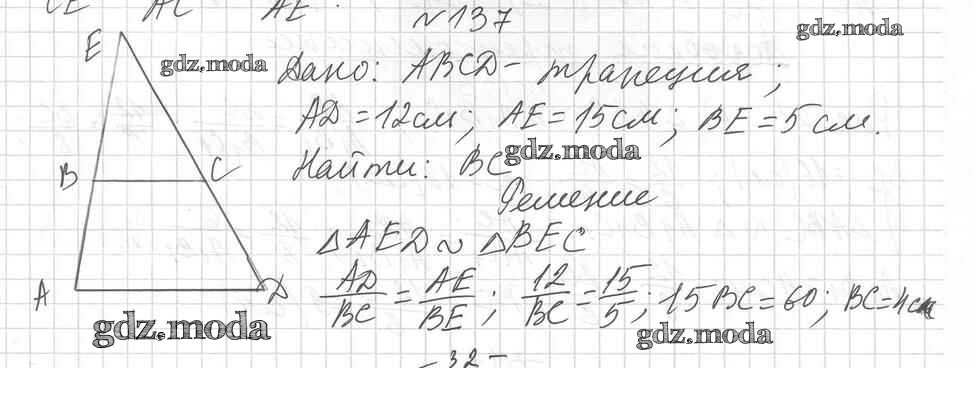 CE AC AE
№137
gdz.moda
E
gdz.moda
Дано: ABCD - трапеция;
AD = 12 см; AE = 15 см; BE = 5 см.
gdz.moda
Найти: BC
B C
Решение
△AED ~ △BEC
A D
AD/BC = AE/BE; 12/BC = 15/5; 15BC = 60; BC = 4 см
gdz.moda
gdz.moda
- 32 -